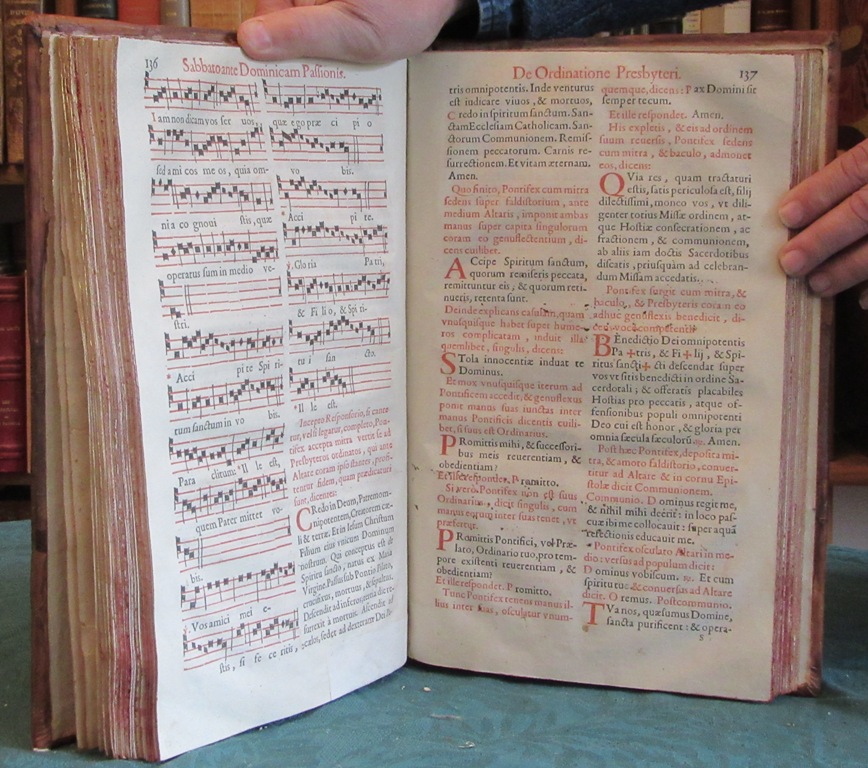 136
Sabbato ante Dominicam Passionis.
I am non dicam vos ser uos,
sed ami cos me os, quia om-
ni a co gnoui stis, quæ
operatus sum in medio ve-
stri.
* Acci pi te Spi ri-
rum sanctum in vo bis.
Para clitum: * Il le est,
quem Pater mittet vo-
bis.
℣. Vos amici mei e-
stis, si fe ce ritis,
quæ ego præ ci pi o
vo bis.
* Acci pi te.
℣. Glo ria Pa tri,
& Fi li o, & Spi ri-
tu i san cto.
* Il le est.
Incepto Responsorio, si cante-
tur, vel si legatur, completo, Pon-
tifex accepta mitra vertit se ad
Presbyteros ordinatos, qui ante
Altare coram ipso stantes, profi-
tentur fidem, quam prædicaturi
sunt, dicentes:
CRedo in Deum, Patrem om-
nipotentem, Creatorem cæ-
li & terræ. Et in Iesum Christum
Filium eius vnicum Dominum
nostrum. Qui conceptus est de
Spiritu sancto, natus ex Maria
Virgine. Passus sub Pontio Pilato,
crucifixus, mortuus, & sepultus.
Descendit ad inferos, tertia die re-
surrexit à mortuis. Ascendit ad
cælos, sedet ad dexteram Dei Pa-
De Ordinatione Presbyteri.
137
tris omnipotentis. Inde venturus
est iudicare viuos, & mortuos,
Credo in spiritum sanctum. San-
ctam Ecclesiam Catholicam. San-
ctorum Communionem. Remis-
sionem peccatorum. Carnis re-
surrectionem. Et vitam æternam.
Amen.
Quo finito, Pontifex cum mitra
sedens super faldistorium, ante
medium Altaris, imponit ambas
manus super capita singulorum
coram eo genuflectentium, di-
cens cuilibet:
ACcipe Spiritum sanctum,
quorum remiseris peccata,
remittuntur eis, & quorum reti-
nueris, retenta sunt.
Deinde explicans casulam, quam
vnusquisque habet super hume-
ros complicatam, induit illa
quemlibet, singulis, dicens:
STola innocentiæ induat te
Dominus.
Et mox vnusquisque iterum ad
Pontificem accedit, & genuflexus
ponit manus suas iunctas inter
manus Pontificis dicentis cuili-
bet, si suus est Ordinarius.
PRomittis mihi, & successori-
bus meis reuerentiam, &
obedientiam?
Et ille respondet. Promitto.
Si verò Pontifex non est suus
Ordinarius, dicit singulis, cum
manus eorum inter suas tenet, vt
præfertur.
PRomittis Pontifici, vel Præ-
lato, Ordinario tuo, pro tem-
pore existenti reuerentiam, &
obedientiam?
Et ille respondet. Promitto.
Tunc Pontifex tenens manus il-
lius inter suas, osculatur vnum-
quemque, dicens: Pax Domini sit
semper tecum.
Et ille respondet. Amen.
His expletis, & eis ad ordinem
suum reuersis, Pontifex sedens
cum mitra, & baculo, admonet
eos, dicens:
QVia res, quam tractaturi
estis, satis periculosa est, filij
dilectissimi, moneo vos, vt dili-
genter totius Missæ ordinem, at-
que Hostiæ consecrationem, ac
fractionem, & communionem,
ab aliis iam doctis Sacerdotibus
discatis, priusquàm ad celebran-
dum Missam accedatis.
Pontifex surgit cum mitra, &
baculo, & Presbyteris coram eo
adhuc genuflexis benedicit, di-
cens voce competenti
BEnedictio Dei omnipotentis
Pa ✠ tris, & Fi ✠ lij, & Spi-
ritus sancti ✠ descendat super
vos vt sitis benedicti in ordine Sa-
cerdotali; & offeratis placabiles
Hostias pro peccatis, atque of-
fensionibus populi omnipotenti
Deo cui est honor, & gloria per
omnia sæcula sæculorum. Amen.
Post hæc Pontifex, deposita mi-
tra, & amoto faldistorio, conuer-
titur ad Altare & in cornu Epi-
stolæ dicit Communionem.
Communio. Dominus regit me,
& nihil mihi deerit: in loco pas-
cuæ ibi me collocauit: super aquâ
refectionis educauit me.
Pontifex osculato Altari in me-
dio: versus ad populum dicit:
Dominus vobiscum. ℟. Et cum
spiritu tuo & conuersus ad Altare
dicit. Oremus. Postcommunio.
TVa nos, quæsumus Domine,
sancta purificent: & opera-
S